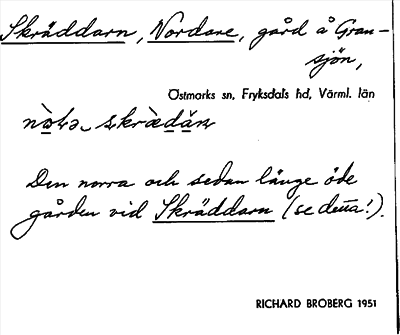 Skräddarn, Nordare, gård å Gran-
sjön,
Östmarks sn, Fryksdals hd, Värml. län
Den norra och sedan länge öde
gården vid Skräddarn (se detta!).
RICHARD BROBERG 1951